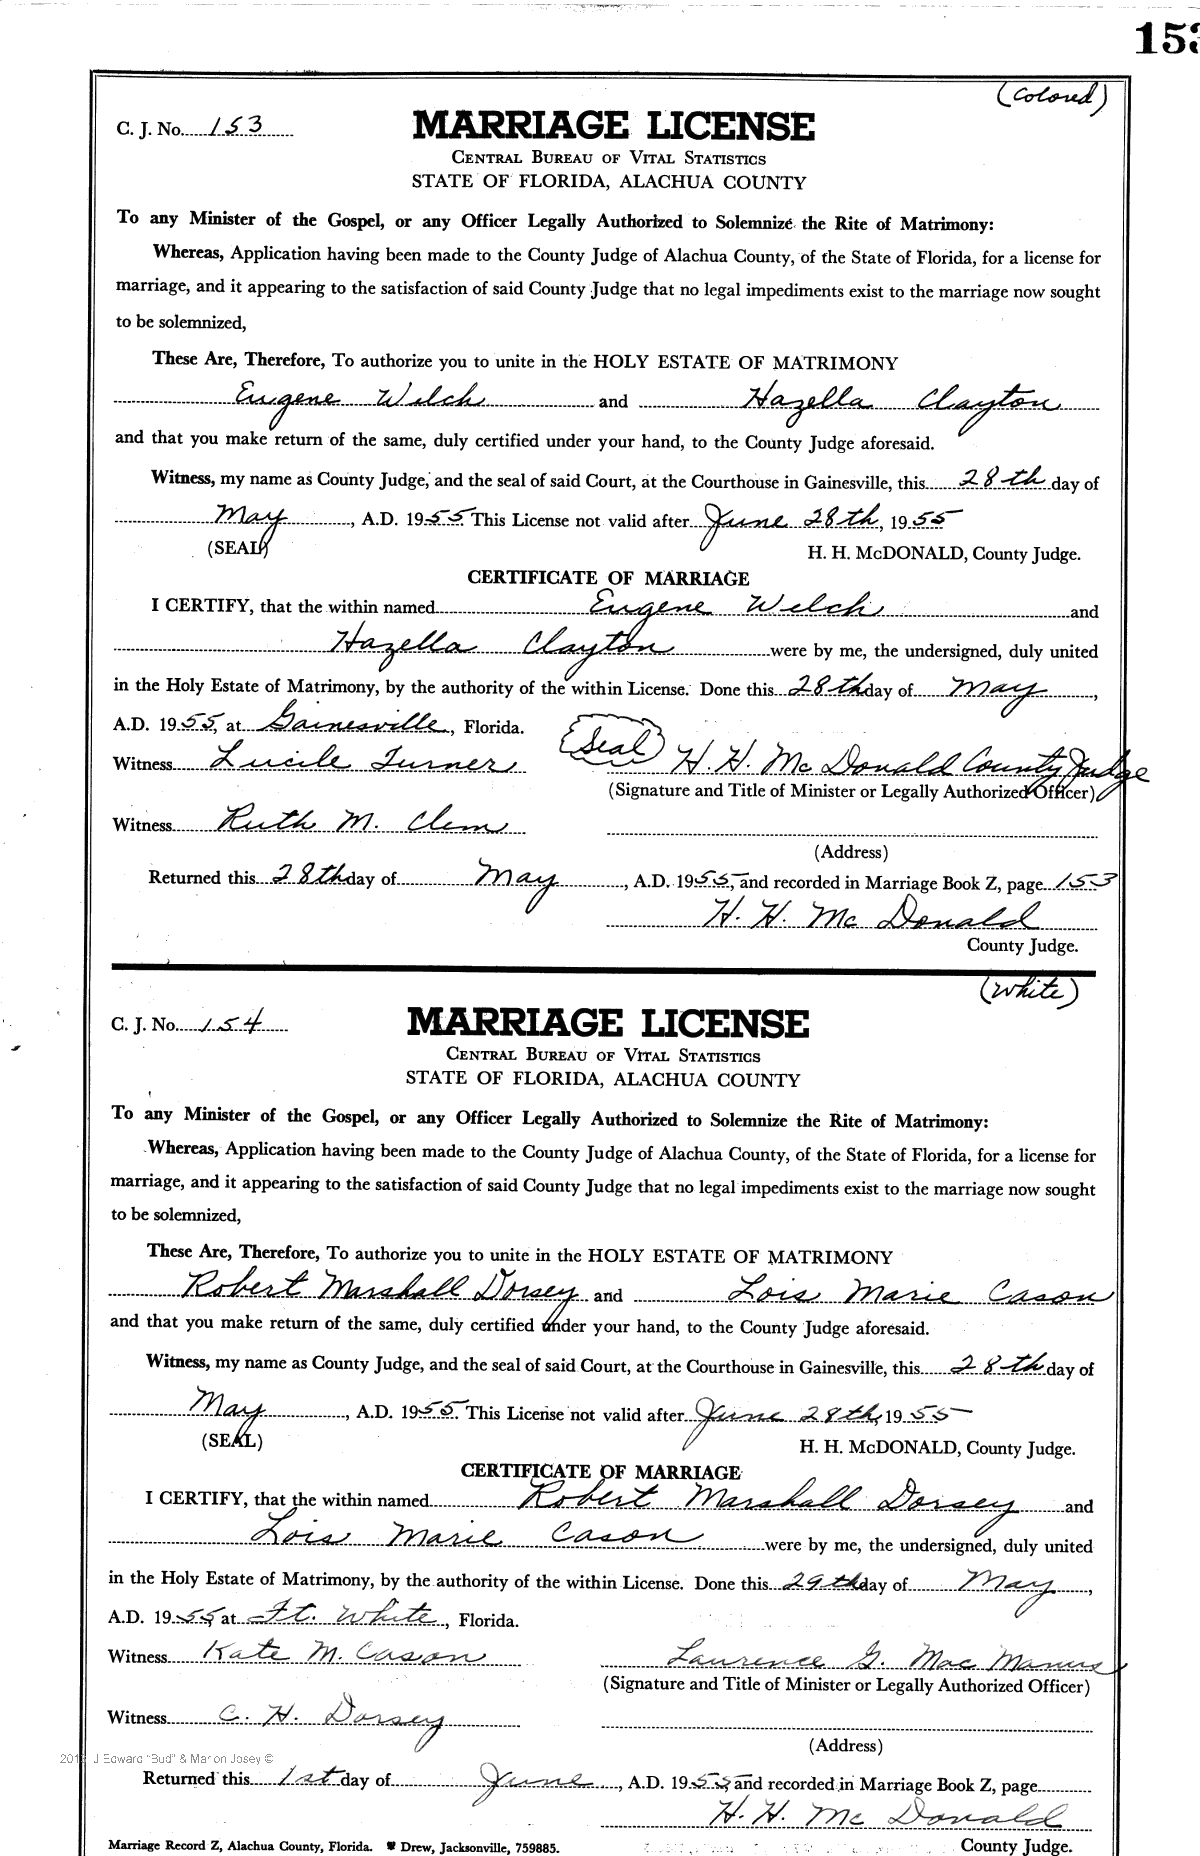 153
(Colored)
C. J. No. 153
MARRIAGE LICENSE
CENTRAL BUREAU OF VITAL STATISTICS
STATE OF FLORIDA, ALACHUA COUNTY
To any Minister of the Gospel, or any Officer Legally Authorized to Solemnize the Rite of Matrimony:
Whereas, Application having been made to the County Judge of Alachua County, of the State of Florida, for a license for
marriage, and it appearing to the satisfaction of said County Judge that no legal impediments exist to the marriage now sought
to be solemnized,
These Are, Therefore, To authorize you to unite in the HOLY ESTATE OF MATRIMONY
Eugene Welch and Hazella Clayton
and that you make return of the same, duly certified under your hand, to the County Judge aforesaid.
Witness, my name as County Judge, and the seal of said Court, at the Courthouse in Gainesville, this 28th day of
May, A.D. 1955 This License not valid after June 28th, 1955
(SEAL) H. H. McDONALD, County Judge.
CERTIFICATE OF MARRIAGE
I CERTIFY, that the within named Eugene Welch and
Hazella Clayton were by me, the undersigned, duly united
in the Holy Estate of Matrimony, by the authority of the within License. Done this 28th day of May,
A.D. 1955, at Gainesville, Florida.
Witness Lucile Turner (Seal) H. H. McDonald County Judge
(Signature and Title of Minister or Legally Authorized Officer)
Witness Ruth M. Clem
(Address)
Returned this 28th day of May, A.D. 1955, and recorded in Marriage Book Z, page 153
H. H. McDonald
County Judge.
(White)
C. J. No. 154
MARRIAGE LICENSE
CENTRAL BUREAU OF VITAL STATISTICS
STATE OF FLORIDA, ALACHUA COUNTY
To any Minister of the Gospel, or any Officer Legally Authorized to Solemnize the Rite of Matrimony:
Whereas, Application having been made to the County Judge of Alachua County, of the State of Florida, for a license for
marriage, and it appearing to the satisfaction of said County Judge that no legal impediments exist to the marriage now sought
to be solemnized,
These Are, Therefore, To authorize you to unite in the HOLY ESTATE OF MATRIMONY
Robert Marshall Dorsey and Lois Marie Cason
and that you make return of the same, duly certified under your hand, to the County Judge aforesaid.
Witness, my name as County Judge, and the seal of said Court, at the Courthouse in Gainesville, this 28th day of
May, A.D. 1955. This License not valid after June 28th, 1955
(SEAL) H. H. McDONALD, County Judge.
CERTIFICATE OF MARRIAGE
I CERTIFY, that the within named Robert Marshall Dorsey and
Lois Marie Cason were by me, the undersigned, duly united
in the Holy Estate of Matrimony, by the authority of the within License. Done this 29th day of May,
A.D. 1955, at Ft. White, Florida.
Witness Kate M. Cason Laurence G. Mac Manus
(Signature and Title of Minister or Legally Authorized Officer)
Witness C. H. Dorsey
(Address)
J Edward "Bud" & Marion Josey ©
Returned this 1st day of June, A.D. 1955, and recorded in Marriage Book Z, page
H. H. McDonald
Marriage Record Z, Alachua County, Florida. Drew, Jacksonville, 759885. County Judge.